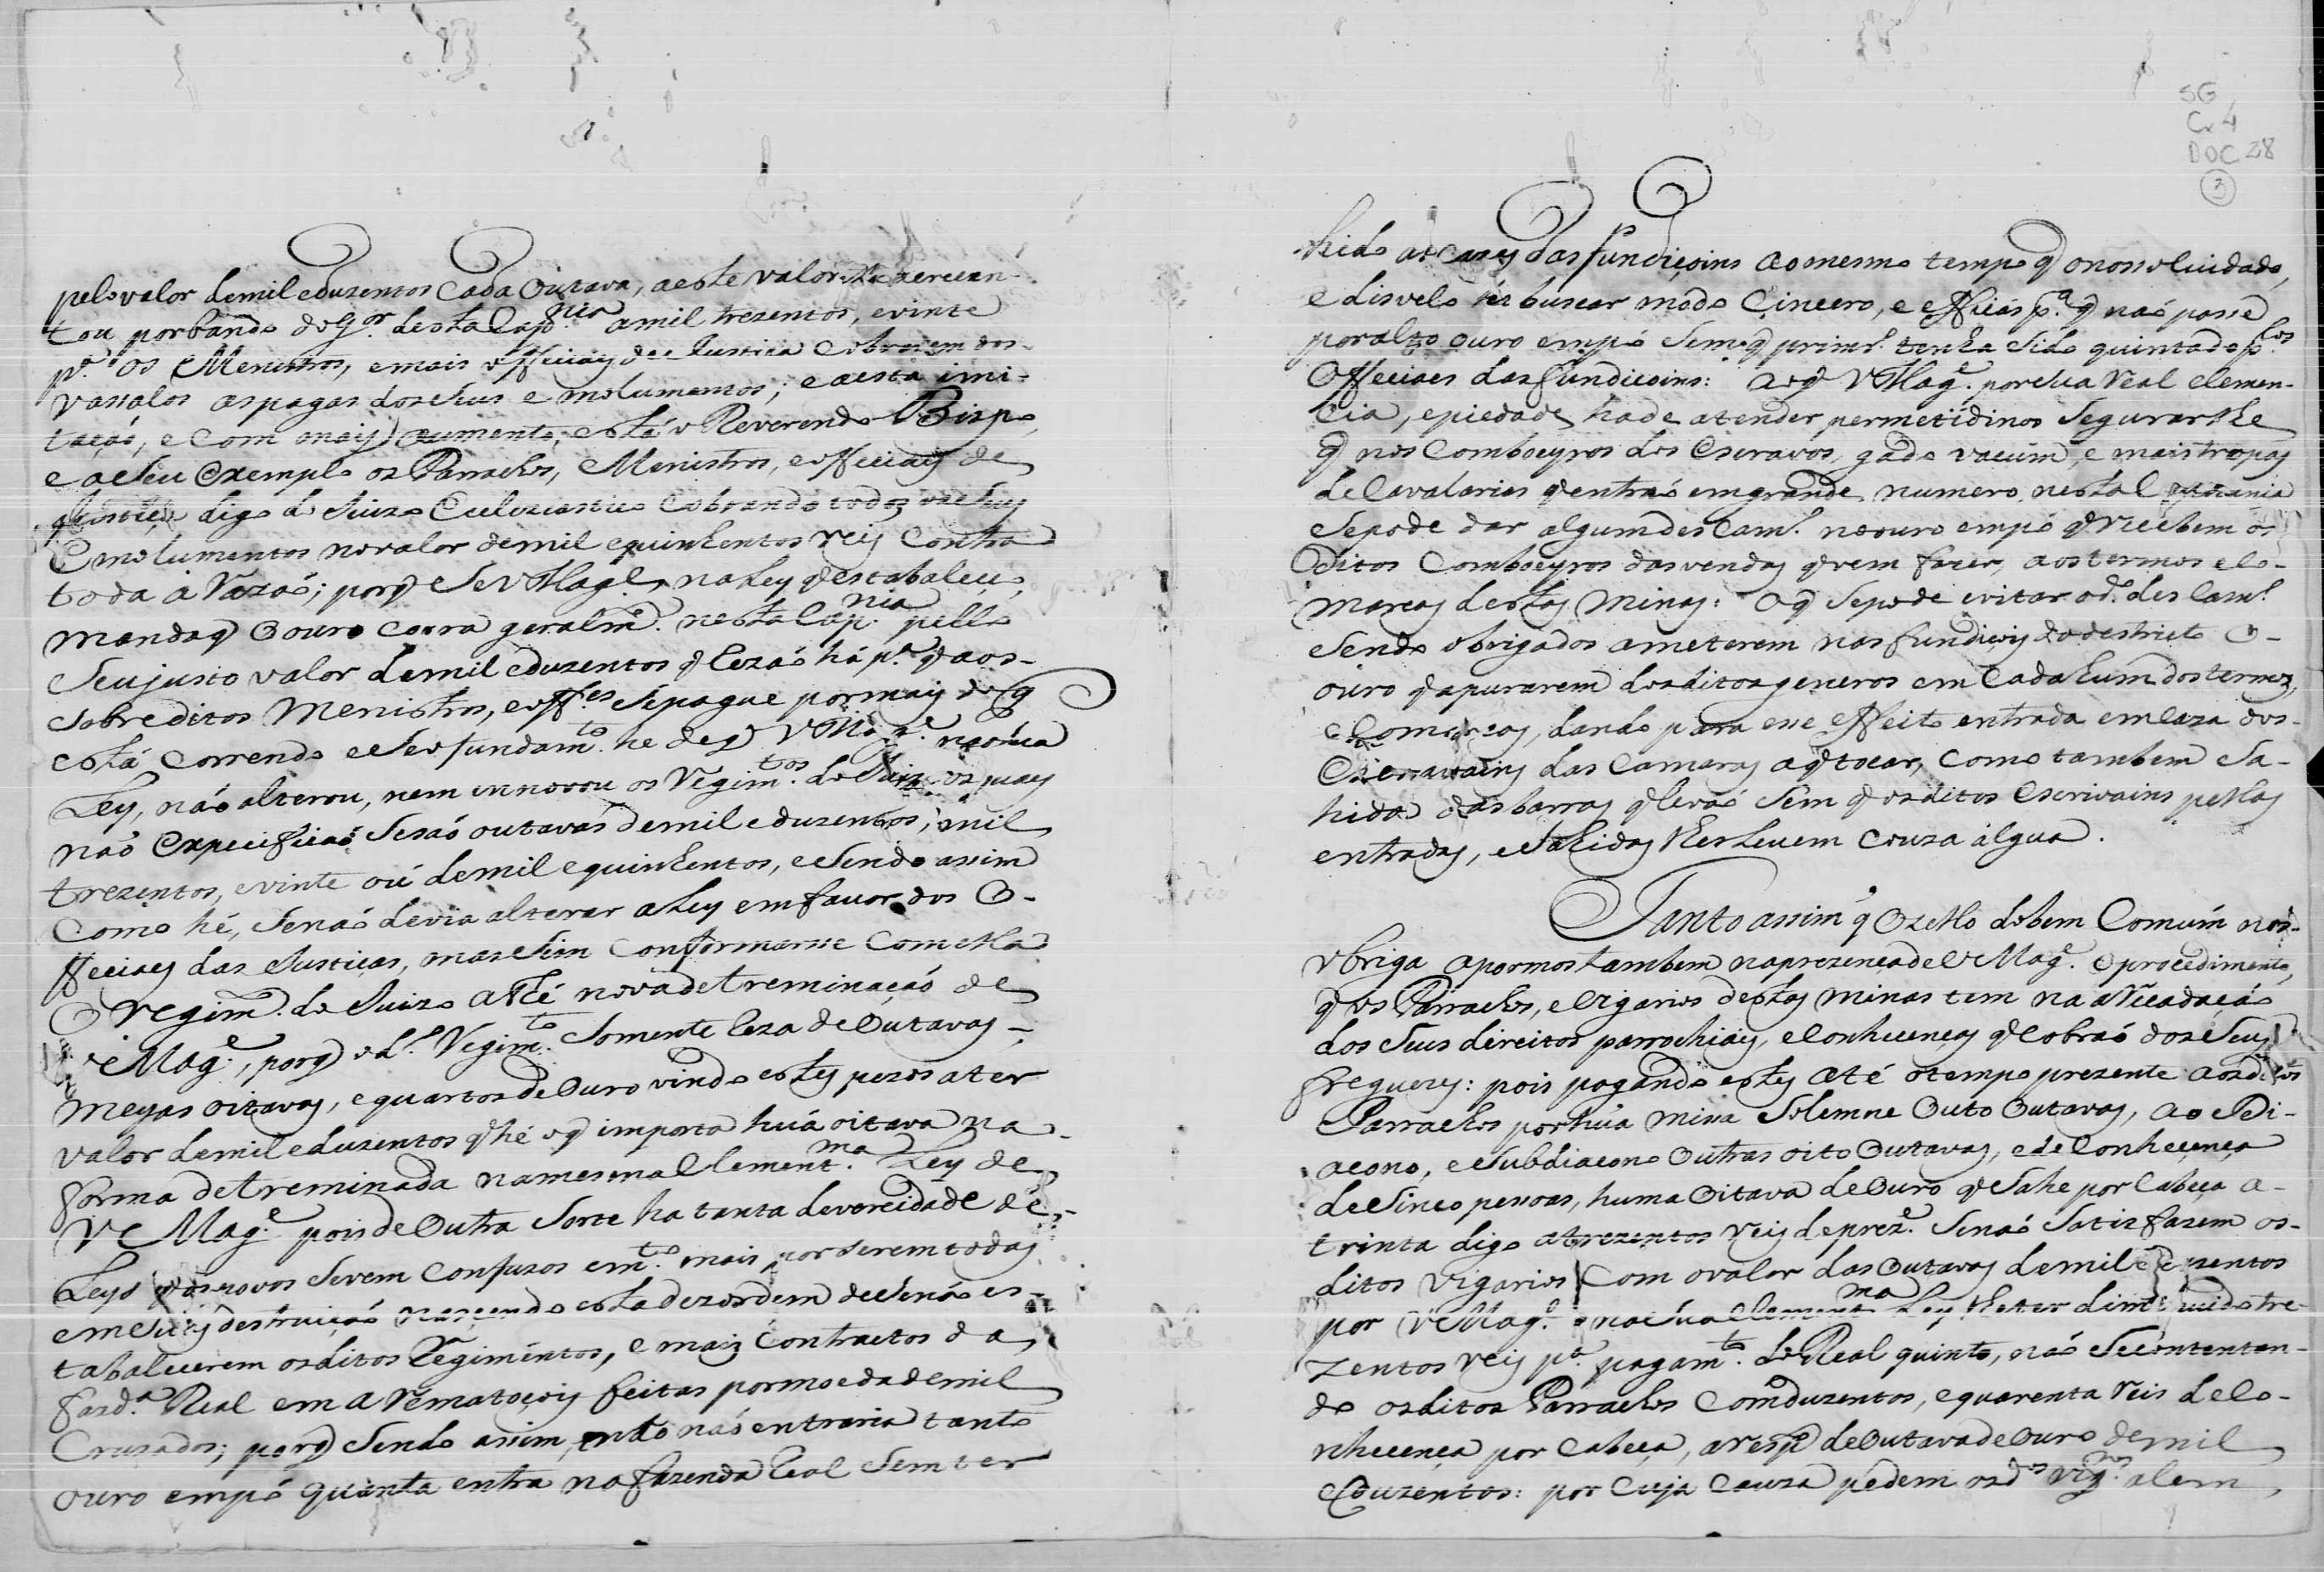 pelo valor de mil e duzentos Cada Outava, a este valor se acrecen-
tou por bando do G.or desta Cap.nia a mil trezentos, e vinte
p.a os Menistros, e mais officiays de Justiça cobrarem dos
vassalos as pagas dos seus emolumentos; e a esta emi-
tação, e com mays aumento, está o Reverendo Bispo,
e a seu Exemplo os Parrachos, Menistros, e officiays de
Justiça digo do Juizo Eccleziastico Cobrando todos os seus
Emolumentos no valor de mil e quinhentos reis Contra
toda a razaó; porq Se V Mag.e na Ley q estabaleceo,
manda q o ouro corra geralm.e nesta Cap.nia pello
Seu justo valor de mil e duzentos q rezaó há p.a q aos-
Sobreditos Menistros, e off.es Se pague por mais do q
está correndo e Se o fundam.to he de q V Mag.e na Sua
Ley, naó alterou, nem innovou os Regim.tos do Juizo os quais
naó expecificaó Se saó outavas de mil e duzentos, mil
trezentos, e vinte ou de mil e quinhentos, e Sendo assim
Como hé, Se naó devia alterar a Ley em favor dos O-
fficiays das Justiças, mas Sim Conformarse Com ella
O regim.to do Juizo athé nova detreminaçaó de
V Mag.e, porq o d.o Regim.to Somente reza de Outavas,
meyas oitavas, e quartos de Ouro vindo estes pezos a ter
valor de mil e duzentos q hé o q importa huá oitava na
forma detreminada na mesma Clement.ma Ley de
V Mag.e pois de Outra Sorte ha tanta devercidade de
Leys q os povos Se vem Confuzos em.to mais por serem todas
em Sua destruiçaó nascendo esta dezordem de Se naó es-
tabalecerem os ditos Regimentos, e mais Contractos da
fazd.a Real em a rematações feitas por moeda de mil
Cruzados; porq Sendo assim, naó entraria tanto
ouro em pó quanto entra na fazenda Real Sem ter
SG
Cx 4
DOC 28
3
hido as Cazas das fundiçoins ao mesmo tempo q o nosso cuidado,
e disvelo hé buscar modo Cincero, e efficás p.a q naó passe
por alto ouro em pó Sem q primr.o tenha Sido quintado p.los
Officiaes das fundicoins: Ao q V Mag.e por Sua Real clemen-
cia, e piedade ha de atender permetidinos Segurarlhe
q nos Comboeyros dos Escravos, gado vacum, e mais tropas
de Cavalarias q entraó em grande numero nesta Capitania
Se pode dar algum descam.o no ouro em pó q recebem os
ditos Comboeyros das vendas q vem fazer, aos termos e Co-
marcas destas Minas: O q Se pode evitar o d.o descam.o
Sendo obrigados a meterem nas fundições do destricto o-
ouro q apurarem dos ditos generos em Cada hum dos termos,
e Comarcas, dando para esse effeito entrada em Caza dos-
Escrivains das Camaras a q tocar, Como tambem Sa-
hida das barras q levaó Sem q os ditos Escrivains pellas
entradas, e Sahidas lhes Levem Couza algua.
Tanto assim q O zello do bem Comum nos-
obriga a pormos tambem na prezença de V Mag.e o procedimento,
q os Parrachos, e Vigarios destas minas tem na arrecadaçaó
dos Seus direitos parrochiays, e Conhecenças q Cobraó dos Seus
freguezes: pois pagando estes até o tempo prezente aos ditos
Parrachos por húa missa Solemne Outo Outavas, ao Di-
acono, e Subdiacono Outras oito Outavas, e de Conhecença
de Sinco pessoas, huma Oitava de Ouro q Sahe por Cabeça a-
trinta digo a trezentos reis de prez.e Se naó Satisfazem os-
ditos Vigarios Com o valor das Outavas de mil e duzentos
por V Mag.e na Sua Clement.ma Ley lhe ter diminuido tre-
zentos reis p.a pagam.to do Real quinto, naó Se contentan-
do os ditos Parrachos Com duzentos, e quarenta reis de Co-
nhecença por Cabeça, a resp.o de Outava de Ouro de mil
e Duzentos: por Cuja Cauza pedem os d.os Vig.ros alem